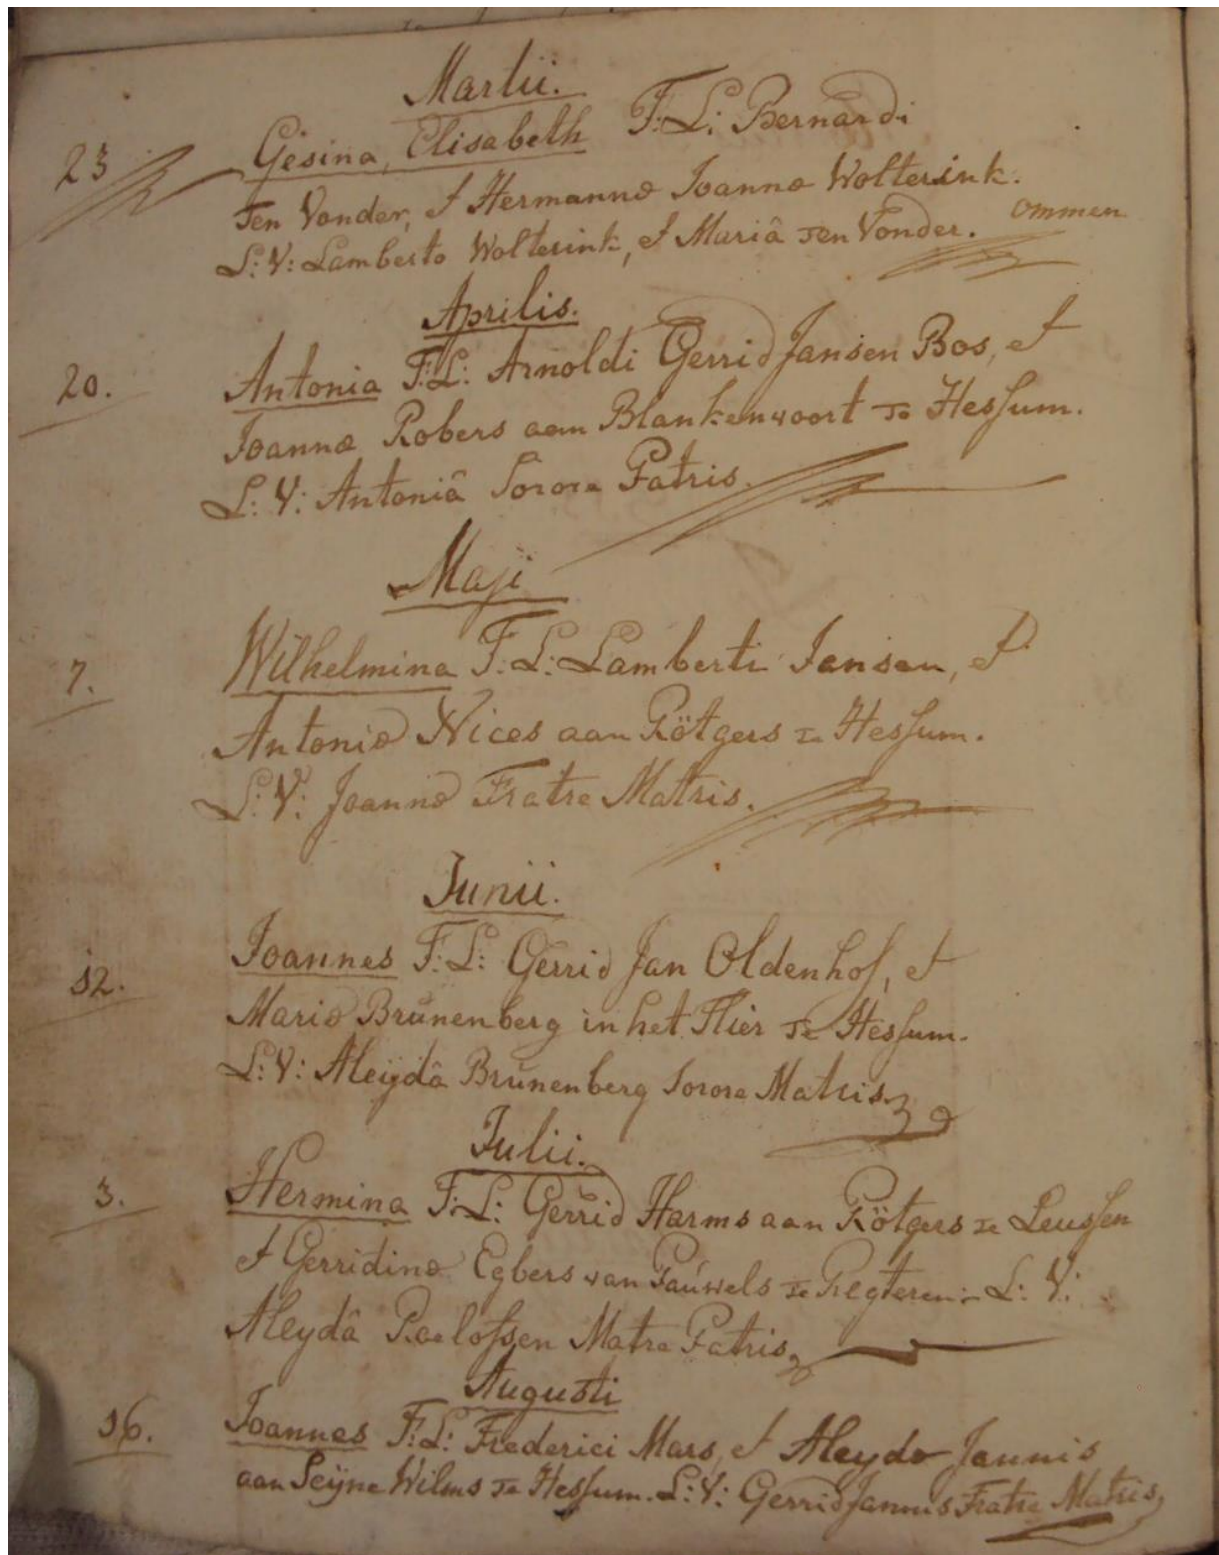 Martii.
23 Gesina Elisabeth F: L: Bernardi
Ten Vonder, et Hermannæ Joannæ Wolterink.
L: V: Lamberto Wolterink, et Mariâ Ten Vonder. Ommen
Aprilis.
20. Antonia F: L: Arnoldi Gerrid Jansen Bos, et
Joannæ Robers aan Blankenvoort Te Hessum.
L: V: Antoniâ Sorore Patris.
Maji
7. Wilhelmina F: L: Lamberti Jansen, et
Antoniæ Nices aan Rötgers Te Hessum.
L: V: Joanne Fratre Matris.
Junii.
12. Joannes F: L: Gerrid Jan Oldenhof, et
Mariæ Brünenberg in het Flier Te Hessum.
L: V: Aleijdâ Brünenberg Sorore Matris
Julii.
3. Hermina F: L: Gerrid Harms aan Rötgers Te Leussen
et Gerridinæ Egbers van Paúwels Te Regteren. L: V:
Aleydâ Roelofsen Matre Patris
Augusti
16. Joannes F: L: Frederici Mars, et Aleydæ Jannis
aan Seijne Wilms Te Hessum. L: V: Gerrid Jannis Fratre Matris